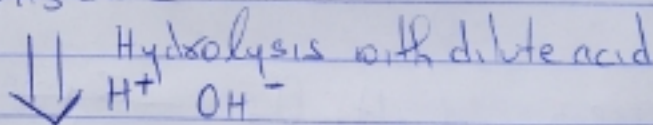 Hydrolysis with dilute acid
H+ OH-